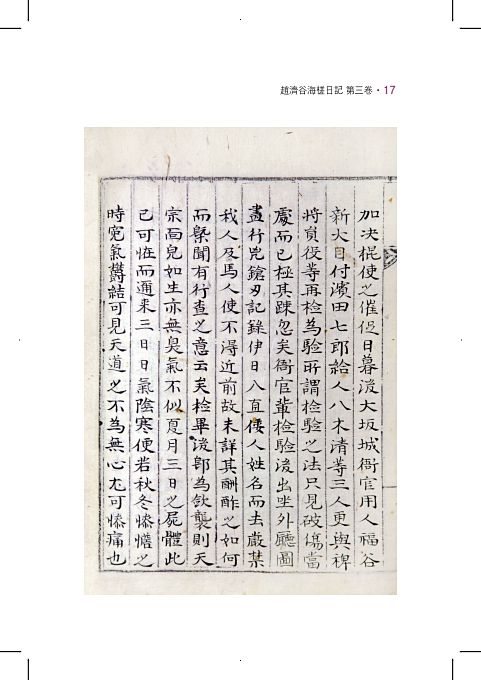 趙濟谷海槎日記 第三卷・17
加决棍使之催促日暮後大坂城衙官用人福谷
新大目付濱田七郎給人八木清等三人更與裨
將員役等再檢為驗所謂檢驗之法只見破傷當
處而已極其踈忽矣衙官輩檢驗後出坐外廳圖
盡行兇鎗刃記錄伊日入直倭人姓名而去嚴禁
我人及馬人使不得近前故未詳其酬酢之如何
而槩聞有行查之意云矣檢畢後卽為飲襲則天
宗面皃如生亦無臭氣不似夏月三日之屍體此
已可恠而邇來三日日氣陰寒便若秋冬慘憺之
時冤氣欝結可見天道之不為無心尤可慘痛也